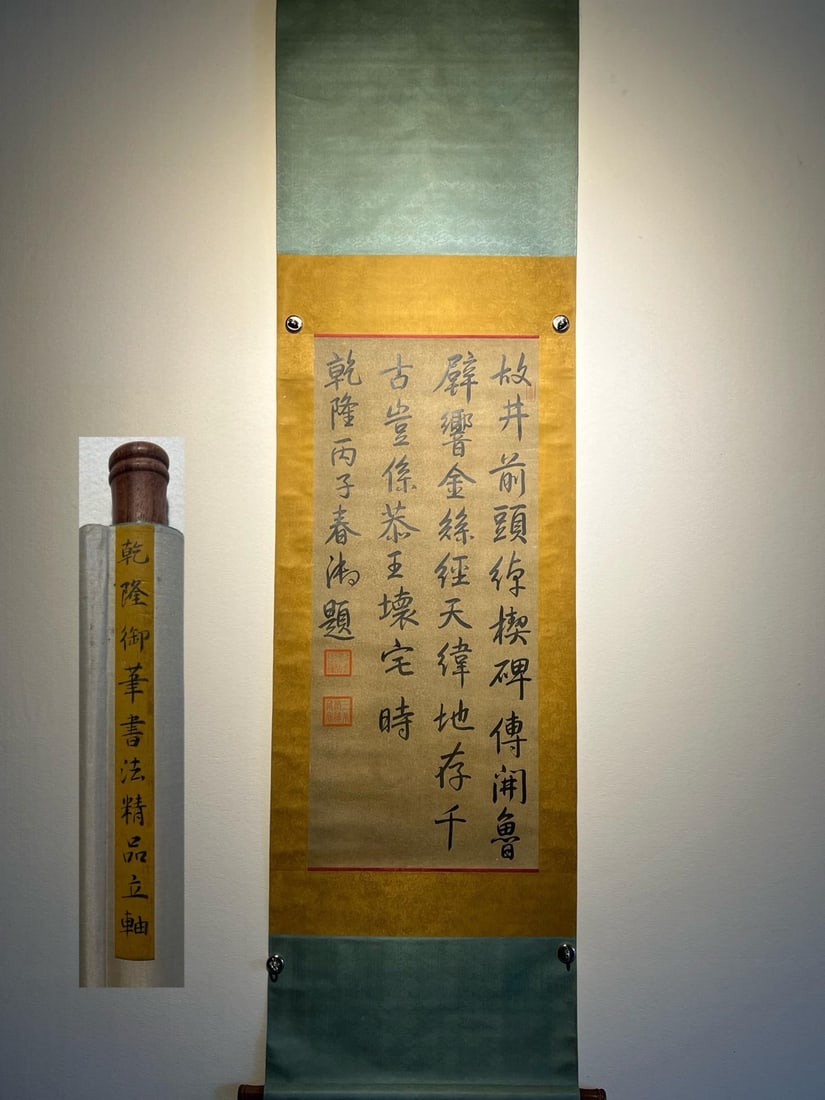 故井前頭綽楔碑傳聞魯
壁響金絲經天緯地存千
古豈係恭王壞宅時
乾隆丙子春御題
乾隆御筆書法精品立軸